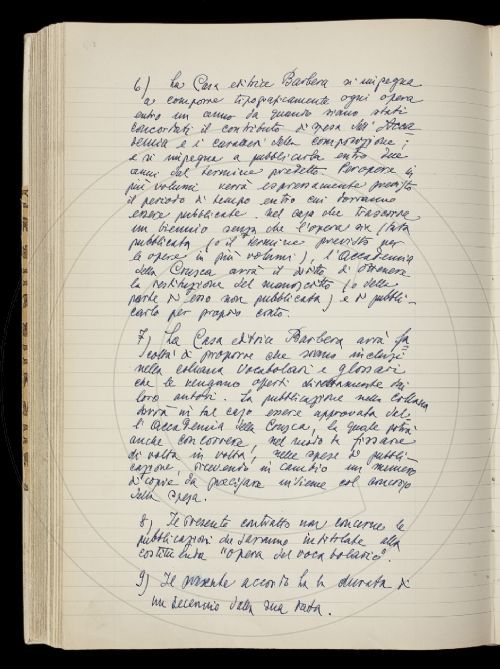 6) La Casa editrice Barbera si impegna
a comporre tipograficamente ogni opera
entro un anno da quando siano stati
concordati il contributo di spesa dell'Acca
demia e i caratteri della composizione;
e si impegna a pubblicarla entro due
anni dal termine predetto. Per opere in
più volumi verrà espressamente previsto
il periodo di tempo entro cui dovranno
essere pubblicate. Nel caso che trascorra
un biennio senza che l'opera sia stata
pubblicata (o il termine previsto per
le opere in più volumi), l'Accademia
della Crusca avrà il diritto di ottenere
la restituzione del manoscritto (o della
parte di esso non pubblicata) e di pubbli-
carlo per proprio conto.
7) La Casa editrice Barbera avrà fa
coltà di proporre che siano inclusi
nella collana vocabolari e glossari
che le vengano offerti direttamente dai
loro autori. La pubblicazione nella collana
dovrà in tal caso essere approvata del
l'Accademia della Crusca, la quale potrà
anche concorrere, nel modo da fissare
di volta in volta, nelle spese di pubbli
cazione, ricevendo in cambio un numero
di copie da precisare insieme col concorso
della spesa.
8) Il presente contratto non concerne le
pubblicazioni che saranno intitolate alla
costituenda "opera del vocabolario".
9) Il presente accordo ha la durata di
un decennio dalla sua data.